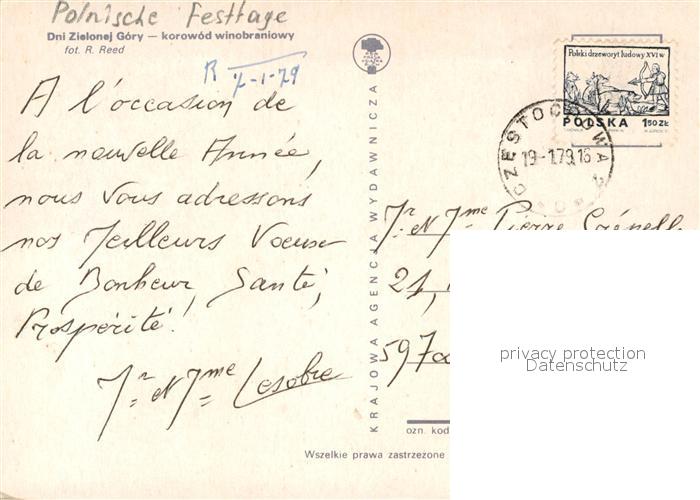 Polnische Festtage
Dni Zielonej Góry — korowód winobraniowy
fot. R. Reed
R 7-1-79
A l'occasion de
la nouvelle Année,
nous vous adressons
nos Meilleurs Voeux
de Bonheur, Santé,
Prospérité!
Mr et Mme Lesobre
KRAJOWA AGENCJA WYDAWNICZA
Polski drzeworyt ludowy XVI w
POLSKA 1,50 ZŁ
CZĘSTOCHOWA 2
19-1.79.16
Mr et Mme Pierre
21,
59700
privacy protection
Datenschutz
ozn. kod
Wszelkie prawa zastrzeżone